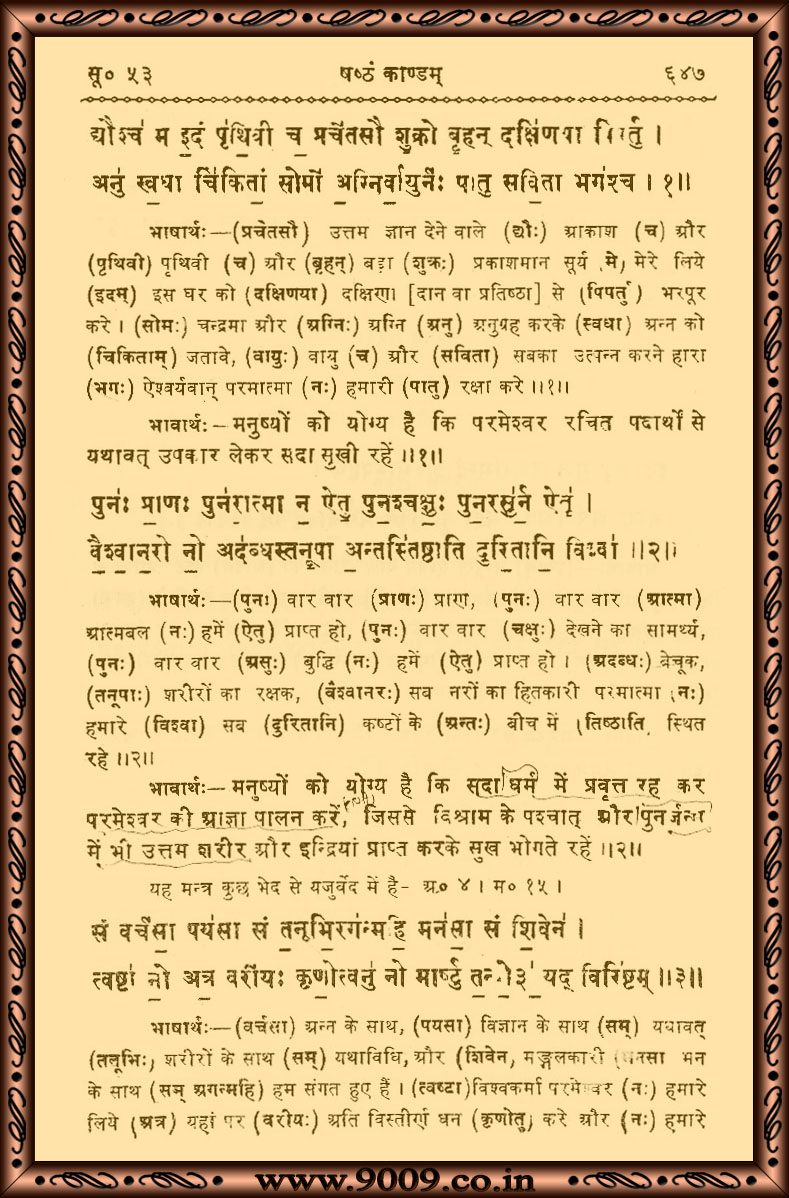 सू० ५३ षष्ठं काण्डम् ६४७
द्यौश्च॑ म इ॒दं पृ॑थि॒वी च॒ प्रचे॑तसौ शु॒क्रो बृ॒हन् दक्षि॑णया
अनु॑ स्व॒धा चि॑कितां॒ सोमो॑ अ॒ग्निर्वा॒युर्नः॑ पातु॒ सवि॒ता भग॑श्च । १॥
भाषार्थः—(प्रचेतसौ) उत्तम ज्ञान देने वाले (द्यौः) आकाश (च) और
(पृथिवी) पृथिवी (च) और (बृहन्) बड़ा (शुक्रः) प्रकाशमान सूर्य मे) मेरे लिये
(इदम्) इस घर को (दक्षिणया) दक्षिणा [दान वा प्रतिष्ठा] से (पिपर्तु) भरपूर
करे । (सोमः) चन्द्रमा और (अग्निः) अग्नि (अनु) अनुग्रह करके (स्वधा) अन्न को
(चिकिताम्) जतावे, (वायुः) वायु (च) और (सविता) सबका उत्पन्न करने हारा
(भगः) ऐश्वर्यवान् परमात्मा (नः) हमारी (पातु) रक्षा करे ॥१॥
भावार्थः—मनुष्यों को योग्य है कि परमेश्वर रचित पदार्थों से
यथावत् उपकार लेकर सदा सुखी रहें ॥१॥
पुनः॑ प्रा॒णः पुन॑रा॒त्मा न॒ ऐतु॒ पुन॒श्चक्षुः॒ पुन॒रसु॑र्न॒ ऐतु॑ ।
वै॒श्वा॒न॒रो नो॒ अद॑ब्धस्तनू॒पा अ॒न्तस्ति॑ष्ठाति दुरि॒तानि॒ विश्वा॑ ॥२॥
भाषार्थः—(पुनः) वार वार (प्राणः) प्राण, (पुनः) वार वार (आत्मा)
आत्मबल (नः) हमें (ऐतु) प्राप्त हो, (पुनः) वार वार (चक्षुः) देखने का सामर्थ्य,
(पुनः) वार वार (असुः) बुद्धि (नः) हमें (ऐतु) प्राप्त हो । (अदब्धः) बेचूक,
(तनूपाः) शरीरों का रक्षक, (वैश्वानरः) सब नरों का हितकारी परमात्मा (नः)
हमारे (विश्वा) सब (दुरितानि) कष्टों के (अन्तः) बीच में (तिष्ठाति) स्थित
रहे ॥२॥
भावार्थः—मनुष्यों को योग्य है कि सदा धर्म में प्रवृत्त रह कर
परमेश्वर की आज्ञा पालन करें, जिससे विश्राम के पश्चात् और पुनर्जन्म
में भी उत्तम शरीर और इन्द्रियां प्राप्त करके सुख भोगते रहें ॥२॥
यह मन्त्र कुछ भेद से यजुर्वेद में है- अ० ४ । म० १५ ।
सं वर्च॑सा॒ पय॑सा॒ सं त॒नूभि॒रग॑न्महि॒ मन॑सा॒ सं शि॒वेन॑ ।
त्वष्टा॑ नो॒ अत्र॒ वरी॑यः कृणो॒त्वनु॑ नो मार्ष्टु त॒न्वो॒३॑ यद् विरि॑ष्टम् ॥३॥
भाषार्थः—(वर्चसा) अन्न के साथ, (पयसा) विज्ञान के साथ (सम्) यथावत्
(तलूभिः) शरीरों के साथ (सम्) यथाविधि, और (शिवेन) मङ्गलकारी (मनसा मन
के साथ (सम् अगन्महि) हम संगत हुए हैं । (त्वष्टा)विश्वकर्मा परमेश्वर (नः) हमारे
लिये (अत्र) यहां पर (वरीयः) अति विस्तीर्ण धन (कृणोतु) करे और (नः) हमारे
www.9009.co.in